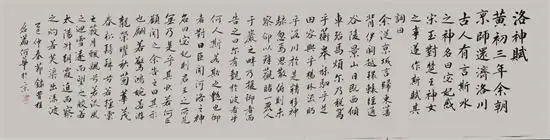 洛神賦
黃初三年余朝
京師還濟洛川
古人有言斯水
之神名曰宓妃感
宋玉對楚王神女
之事遂作斯賦其
詞曰
余從京城言歸東藩
背伊闕越轘轅經通
谷陵景山日既西傾
車殆馬煩爾乃稅駕
乎蘅皋秣駟乎芝
田容與乎楊林流眄
乎洛川於是精移神
駭忽焉思散俯則未
察仰以殊觀睹一麗人
于巖之畔乃援御者而
告之曰爾有覿於彼者乎
何人斯若此之艷也御
者對曰臣聞河洛之神
名曰宓妃則君王之所見
無乃是乎其狀若何臣
願聞之余告之曰其形
也翩若驚鴻婉若游
龍榮曜秋菊華茂
春松髣髴兮若輕雲
之蔽月飄飄兮若流風
之迴雪遠而望之皎若
太陽升朝霞迫而察
之灼若芙蕖出淥波
仲春節錄曹植
名篇何華於京